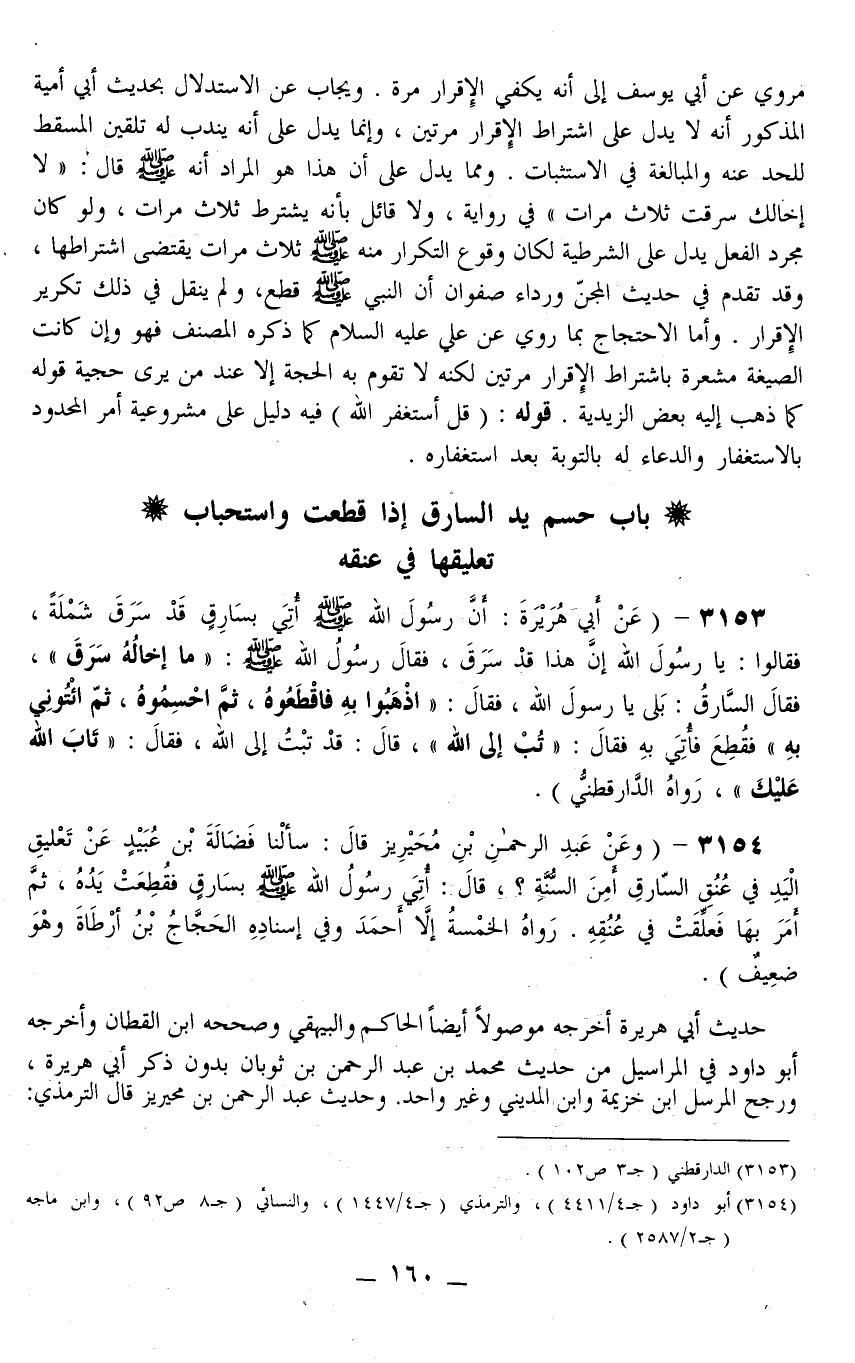 مروي عن أبي يوسف إلى أنه يكفي الإقرار مرة . ويجاب عن الاستدلال بحديث أبي أمية
المذكور أنه لا يدل على اشتراط الإقرار مرتين ، وإنما يدل على أنه يندب له تلقين المسقط
للحد عنه والمبالغة في الاستثبات . ومما يدل على أن هذا هو المراد أنه ﷺ قال : « لا
إخالك سرقت ثلاث مرات » في رواية ، ولا قائل بأنه يشترط ثلاث مرات ، ولو كان
مجرد الفعل يدل على الشرطية لكان وقوع التكرار منه ﷺ ثلاث مرات يقتضى اشتراطها ،
وقد تقدم في حديث المجنّ ورداء صفوان أن النبي ﷺ قطع، ولم ينقل في ذلك تكرير
الإقرار . وأما الاحتجاج بما روي عن علي عليه السلام كما ذكره المصنف فهو وإن كانت
الصيغة مشعرة باشتراط الإقرار مرتين لكنه لا تقوم به الحجة إلا عند من يرى حجية قوله
كما ذهب إليه بعض الزيدية . قوله : ( قل أستغفر الله ) فيه دليل على مشروعية أمر المحدود
بالاستغفار والدعاء له بالتوبة بعد استغفاره .
باب حسم يد السارق إذا قطعت واستحباب
تعليقها في عنقه
٣١٥٣ – ( عَنْ أَبِي هُرَيْرَةَ : أَنَّ رسُولَ الله ﷺ أُتِيَ بِسَارِقٍ قَدْ سَرَقَ شَمْلَةً ،
فقالوا : يا رسُولَ الله إنَّ هذا قدْ سَرَقَ ، فقالَ رسُولُ الله ﷺ : « ما إخالُهُ سَرَقَ » ،
فقالَ السَّارِقُ : بَلى يا رسولَ الله ، فقالَ : « اذْهَبُوا بهِ فاقْطَعُوهُ ، ثمَّ احْسِمُوهُ ، ثمّ ائْتُونِي
بهِ » فقُطِعَ فأُتِيَ بهِ فقالَ : « تُبْ إلى الله » ، قالَ : قدْ تبْتُ إلى الله ، فقالَ : « تَابَ الله
عَليْكَ » ، رَواهُ الدَّارقطنيُّ ) .
٣١٥٤ – ( وعَنْ عَبدِ الرحمنِ بْنِ مُحَيْرِيز قالَ : سألْنا فَضَالَةَ بْن عُبَيْدٍ عَنْ تَعْليقِ
الْيَدِ في عُنُقِ السّارقِ أَمِنَ السُّنَّةِ ؟ ، قالَ : أُتِيَ رسُولُ الله ﷺ بسَارقٍ فقُطِعَتْ يَدُهُ ، ثمَّ
أَمَرَ بهَا فَعلِّقَتْ في عُنُقِهِ . رَواهُ الخمْسةُ إلَّا أحمَدَ وفي إسنادِهِ الحَجَّاجُ بْنُ أرْطَاةَ وهْوَ
ضعِيفٌ ) .
حديث أبي هريرة أخرجه موصولاً أيضاً الحاكم والبيهقي وصححه ابن القطان وأخرجه
أبو داود في المراسيل من حديث محمد بن عبد الرحمن بن ثوبان بدون ذكر أبي هريرة ،
ورجح المرسل ابن خزيمة وابن المديني وغير واحد. وحديث عبد الرحمن بن محيريز قال الترمذي:
(٣١٥٣) الدارقطني ( جـ٣ ص١٠٢ ) .
(٣١٥٤) أبو داود ( جـ٤/٤٤١١ ) ، والترمذي ( جـ٤/١٤٤٧ ) ، والنسائي ( جـ٨ ص٩٢ ) ، وابن ماجه
( جـ٢/٢٥٨٧ ) .
– ١٦٠ –